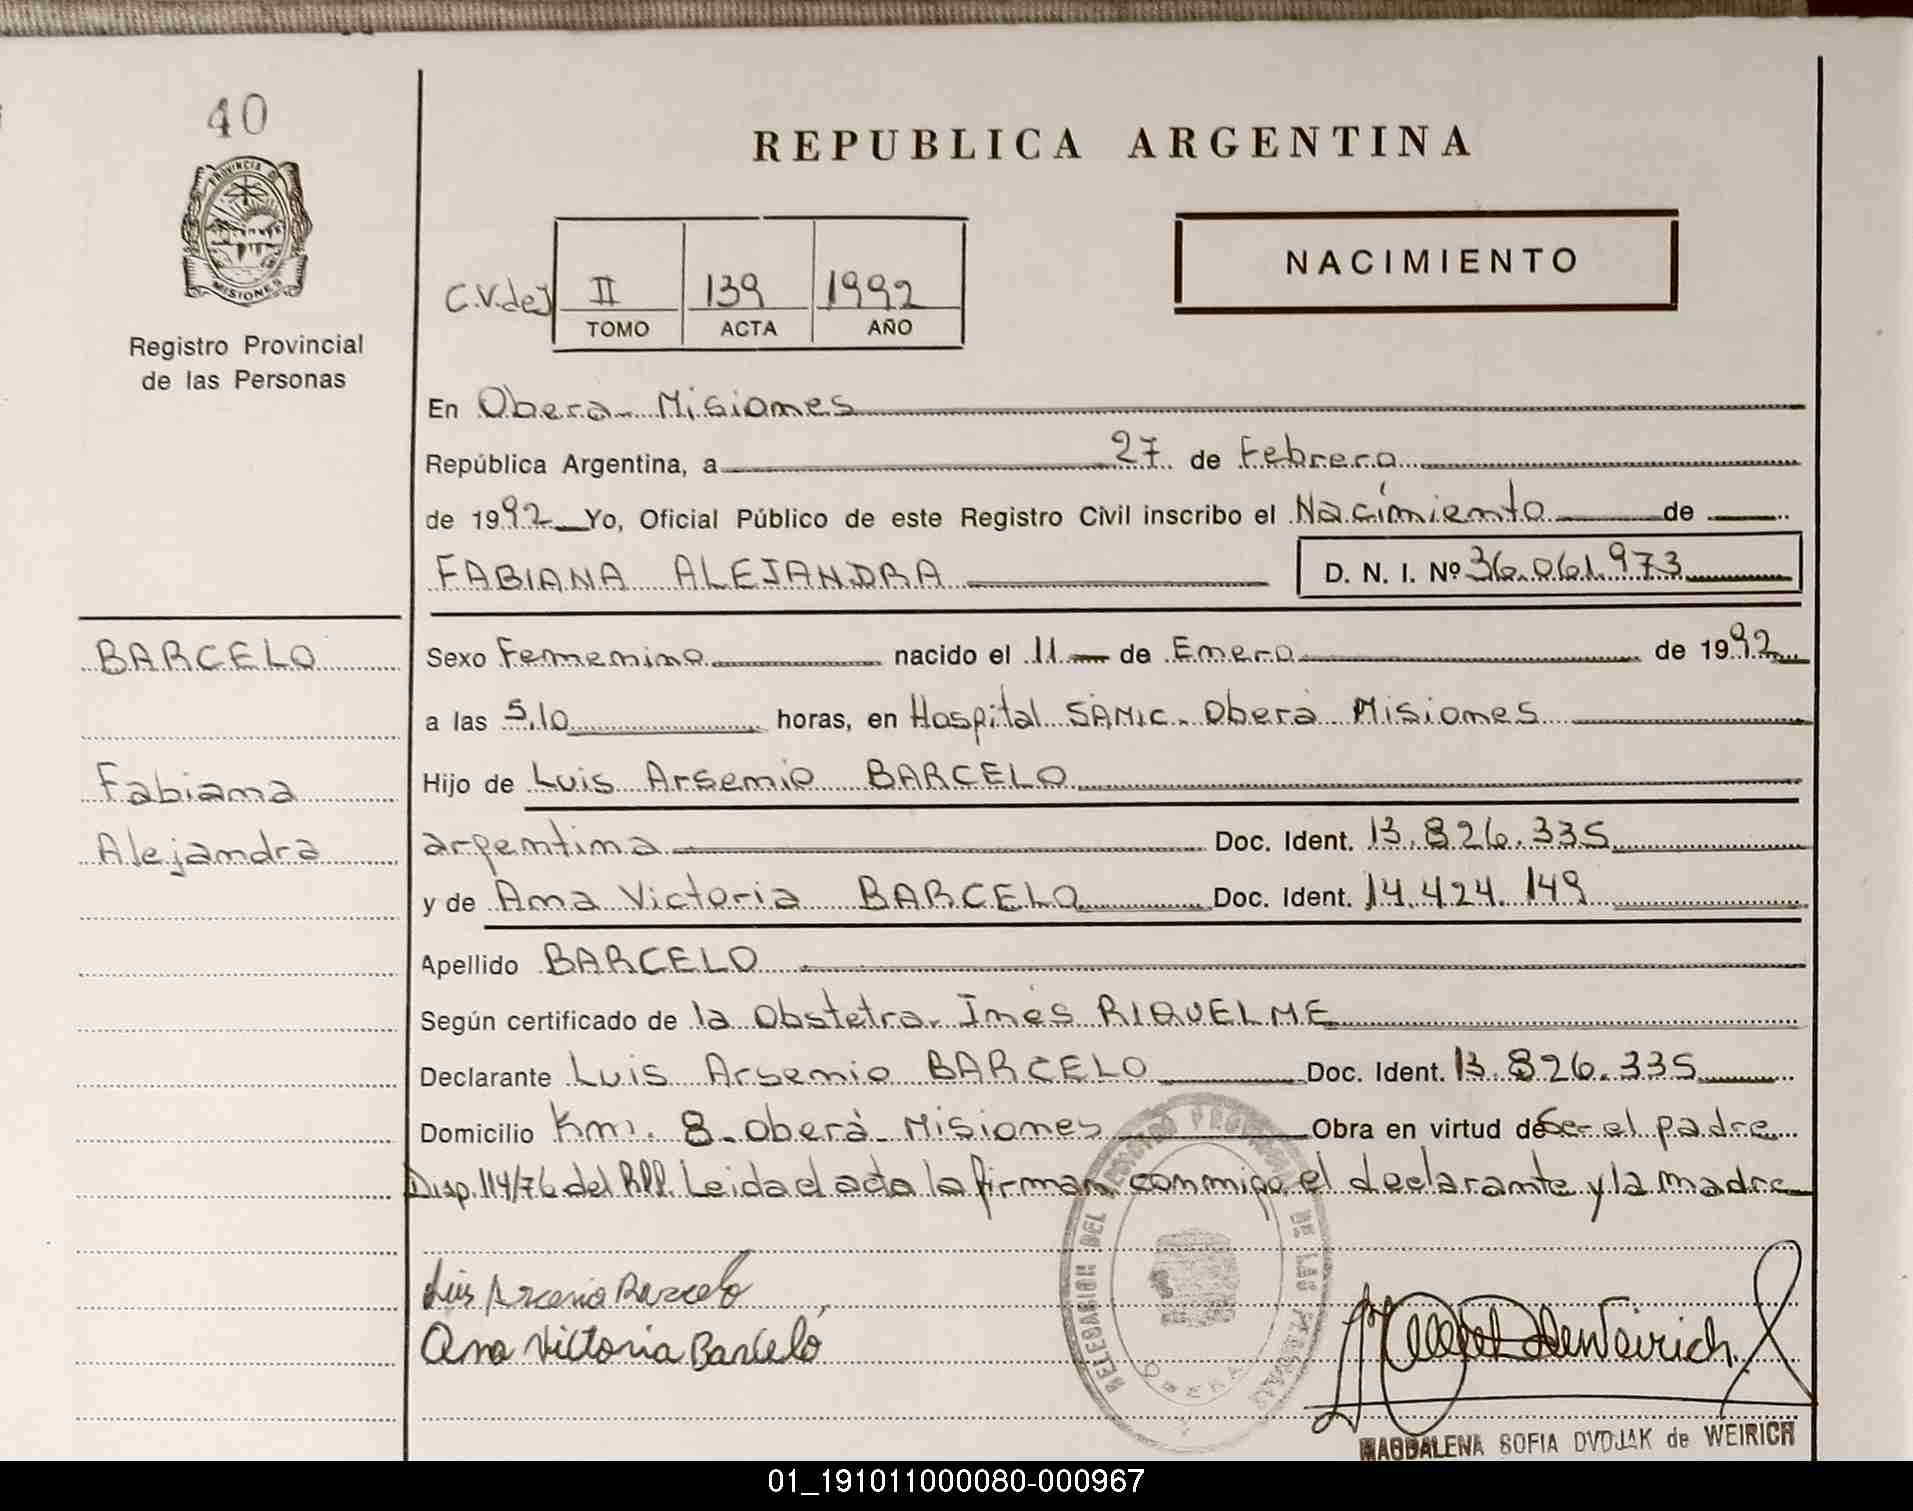 40
PROVINCIA DE
MISIONES
Registro Provincial
de las Personas
REPUBLICA ARGENTINA
NACIMIENTO
C.V.deJ II 139 1992
TOMO ACTA AÑO
En Obera - Misiones
República Argentina, a 27 de Febrero
de 1992 Yo, Oficial Público de este Registro Civil inscribo el Nacimiento de
FABIANA ALEJANDRA D. N. I. Nº 36.061.973
BARCELO
Fabiana
Alejandra
Sexo Femenino nacido el 11 de Enero de 1992
a las 5.10 horas, en Hospital SAMIC - Oberá Misiones
Hijo de Luis Arsenio BARCELO
argentina Doc. Ident. 13.826.335
y de Ana Victoria BARCELO Doc. Ident. 14.424.149
Apellido BARCELO
Según certificado de la Obstetra. Inés RIQUELME
Declarante Luis Arsenio BARCELO Doc. Ident. 13.826.335
Domicilio Km. 8 - Oberá - Misiones Obra en virtud de Ser el padre
Disp. 114/76 del RPP. Leida el acta la firman conmigo el declarante y la madre
Luis Arcenio Barcelo
Ana Victoria Barceló
DELEGACION DEL REGISTRO PROVINCIAL DE LAS PERSONAS
OBERA
MAGDALENA SOFIA DVOJAK de WEIRICH
01_191011000080-000967